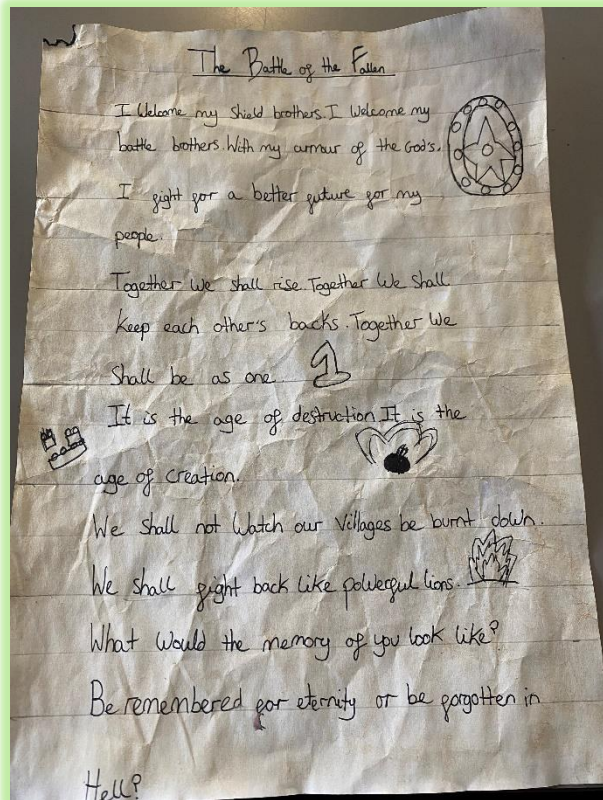 The Battle of the Fallen
I Welcome my Shield brothers. I Welcome my
battle brothers. With my armour of the God's.
I fight for a better future for my
people.
Together We shall rise. Together We Shall
Keep each other's backs. Together We
Shall be as one. 1
It is the age of destruction. It is the
age of creation.
We Shall not Watch our Villages be burnt down.
We Shall fight back like powerful lions.
What Would the memory of you look like?
Be remembered for eternity or be forgotten in
Hell?